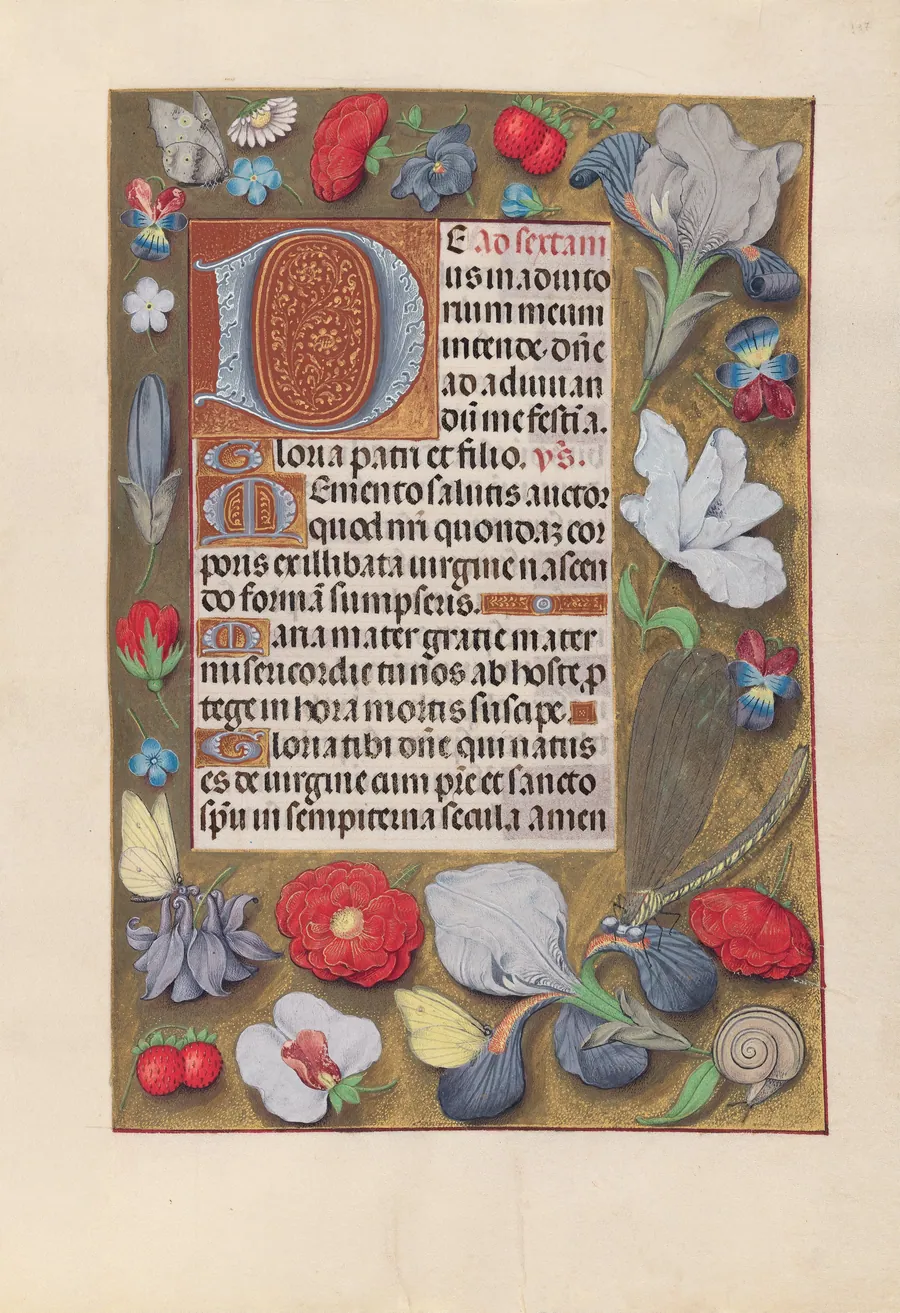 DE Ad sextam
us in adiuto
rium meum
intende. dñe
ad adiuuan
dū me festīa.
Gloria patri et filio. ỹs.
Memento salutis auctor
quod nr̃i quondaz cor
poris ex illibata uirgine nascen
do formā sumpseris.
Maria mater gratie mater
misericordie tu nos ab hoste p̱
tege in hora mortis suscipe.
Gloria tibi dñe qui natus
es de uirgine cum pr̃e et sancto
sp̃u in sempiterna secula Amen